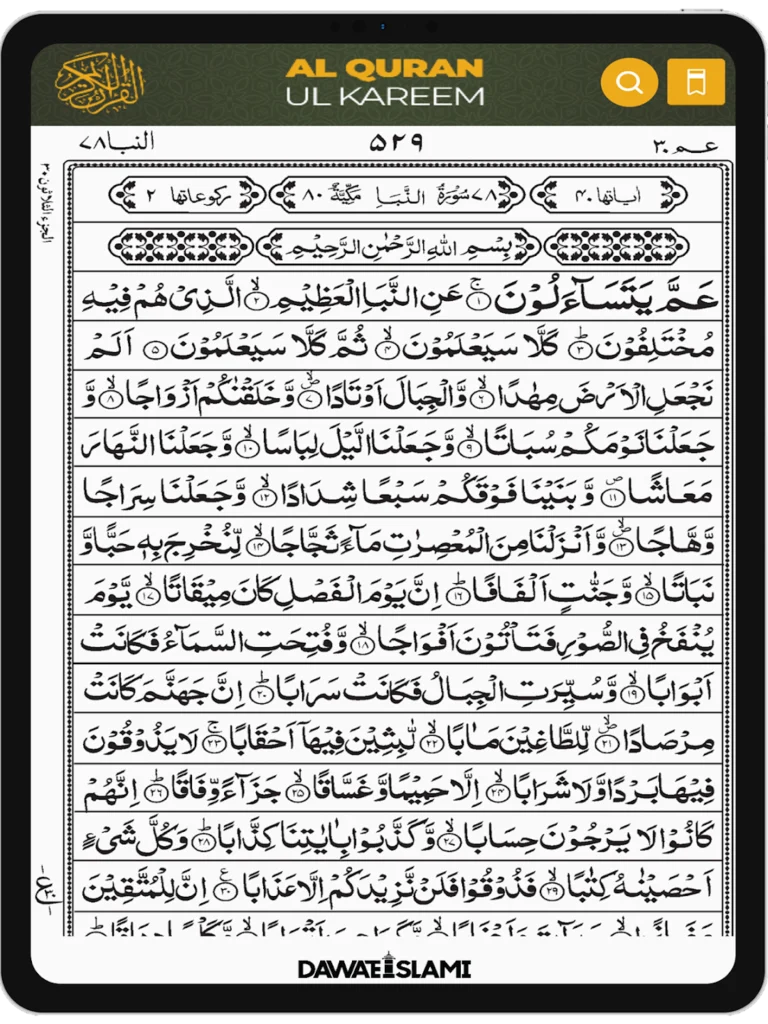 AL QURAN
UL KAREEM
عم ٣٠
٥٢٩
النبا ٧٨
الجزء الثلاثون ٣٠
اٰیاتها ٤٠
٧٨ سُوْرَةُ النَّبَاِ مَكِّيَّةٌ ٨٠
ركوعاتها ٢
بِسْمِ اللهِ الرَّحْمٰنِ الرَّحِيْمِ
عَمَّ يَتَسَآءَلُوْنَۚ ﴿١﴾ عَنِ النَّبَاِ الْعَظِيْمِۙ ﴿٢﴾ الَّذِیْ هُمْ فِيْهِ
مُخْتَلِفُوْنَؕ ﴿٣﴾ كَلَّا سَيَعْلَمُوْنَۙ ﴿٤﴾ ثُمَّ كَلَّا سَيَعْلَمُوْنَ ﴿٥﴾ اَلَمْ
نَجْعَلِ الْاَرْضَ مِهٰدًاۙ ﴿٦﴾ وَّالْجِبَالَ اَوْتَادًا۪ۙ ﴿٧﴾ وَّخَلَقْنٰكُمْ اَزْوَاجًاۙ ﴿٨﴾ وَّ
جَعَلْنَا نَوْمَكُمْ سُبَاتًاۙ ﴿٩﴾ وَّجَعَلْنَا الَّيْلَ لِبَاسًاۙ ﴿١٠﴾ وَّجَعَلْنَا النَّهَارَ
مَعَاشًا۪ ﴿١١﴾ وَّبَنَيْنَا فَوْقَكُمْ سَبْعًا شِدَادًاۙ ﴿١٢﴾ وَّجَعَلْنَا سِرَاجًا
وَّهَّاجًا۪ۙ ﴿١٣﴾ وَّاَنْزَلْنَا مِنَ الْمُعْصِرٰتِ مَآءً ثَجَّاجًاۙ ﴿١٤﴾ لِّنُخْرِجَ بِهٖ حَبًّا وَّ
نَبَاتًاۙ ﴿١٥﴾ وَّجَنّٰتٍ اَلْفَافًاؕ ﴿١٦﴾ اِنَّ يَوْمَ الْفَصْلِ كَانَ مِيْقَاتًاۙ ﴿١٧﴾ يَّوْمَ
يُنْفَخُ فِی الصُّوْرِ فَتَاْتُوْنَ اَفْوَاجًاۙ ﴿١٨﴾ وَّفُتِحَتِ السَّمَآءُ فَكَانَتْ
اَبْوَابًاۙ ﴿١٩﴾ وَّسُيِّرَتِ الْجِبَالُ فَكَانَتْ سَرَابًاؕ ﴿٢٠﴾ اِنَّ جَهَنَّمَ كَانَتْ
مِرْصَادًا۪ۙ ﴿٢١﴾ لِّلطَّاغِيْنَ مَاٰبًاۙ ﴿٢٢﴾ لّٰبِثِيْنَ فِيْهَاۤ اَحْقَابًاۚ ﴿٢٣﴾ لَا يَذُوْقُوْنَ
فِيْهَا بَرْدًا وَّلَا شَرَابًاۙ ﴿٢٤﴾ اِلَّا حَمِيْمًا وَّغَسَّاقًاۙ ﴿٢٥﴾ جَزَآءً وِّفَاقًاؕ ﴿٢٦﴾ اِنَّهُمْ
كَانُوْا لَا يَرْجُوْنَ حِسَابًاۙ ﴿٢٧﴾ وَّكَذَّبُوْا بِاٰيٰتِنَا كِذَّابًاؕ ﴿٢٨﴾ وَكُلَّ شَیْءٍ
اَحْصَيْنٰهُ كِتٰبًاۙ ﴿٢٩﴾ فَذُوْقُوْا فَلَنْ نَّزِيْدَكُمْ اِلَّا عَذَابًا ﴿٣٠﴾ اِنَّ لِلْمُتَّقِيْنَ
DAWATEISLAMI